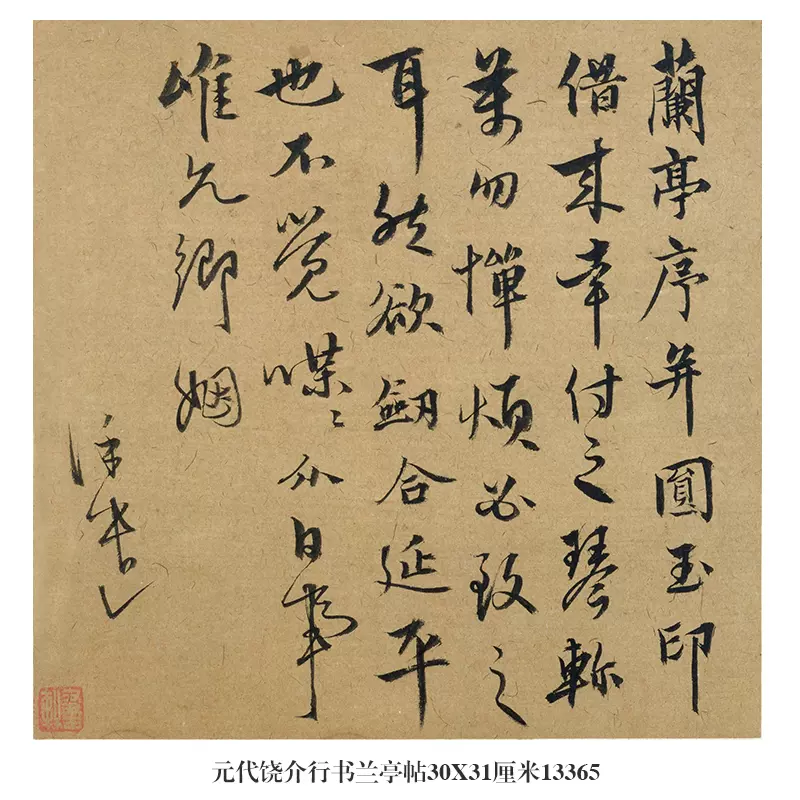 蘭亭序并圓玉印
借來幸付之琴軫
萬勿憚煩必致之
耳然欲劒合延平
也不覺喋〻介日事
唯允鄉姻
元代饶介行书兰亭帖30X31厘米13365